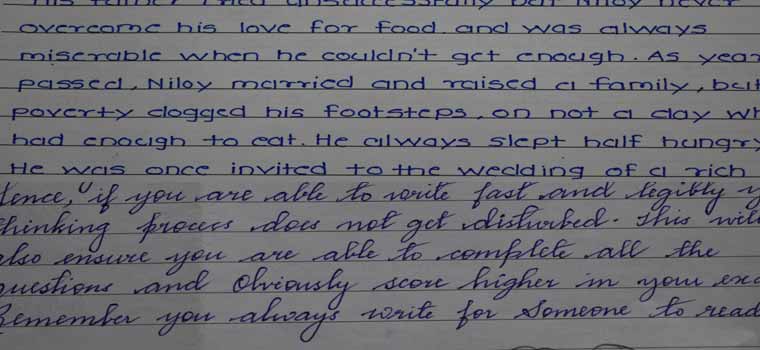 his father tried unsuccessfully but Niloy never
overcome his love for food. and was always
miserable when he couldn't get enough. As year
passed, Niloy married and raised a family, but
poverty dogged his footsteps, on not a day wh
had enough to eat. He always slept half hungry
He was once invited to the wedding of a rich
tence, if you are able to write fast and legibly y
thinking process does not get disturbed. This will
also ensure you are able to complete all the
questions and Obviously score higher in your exa
Remember you always write for Someone to read